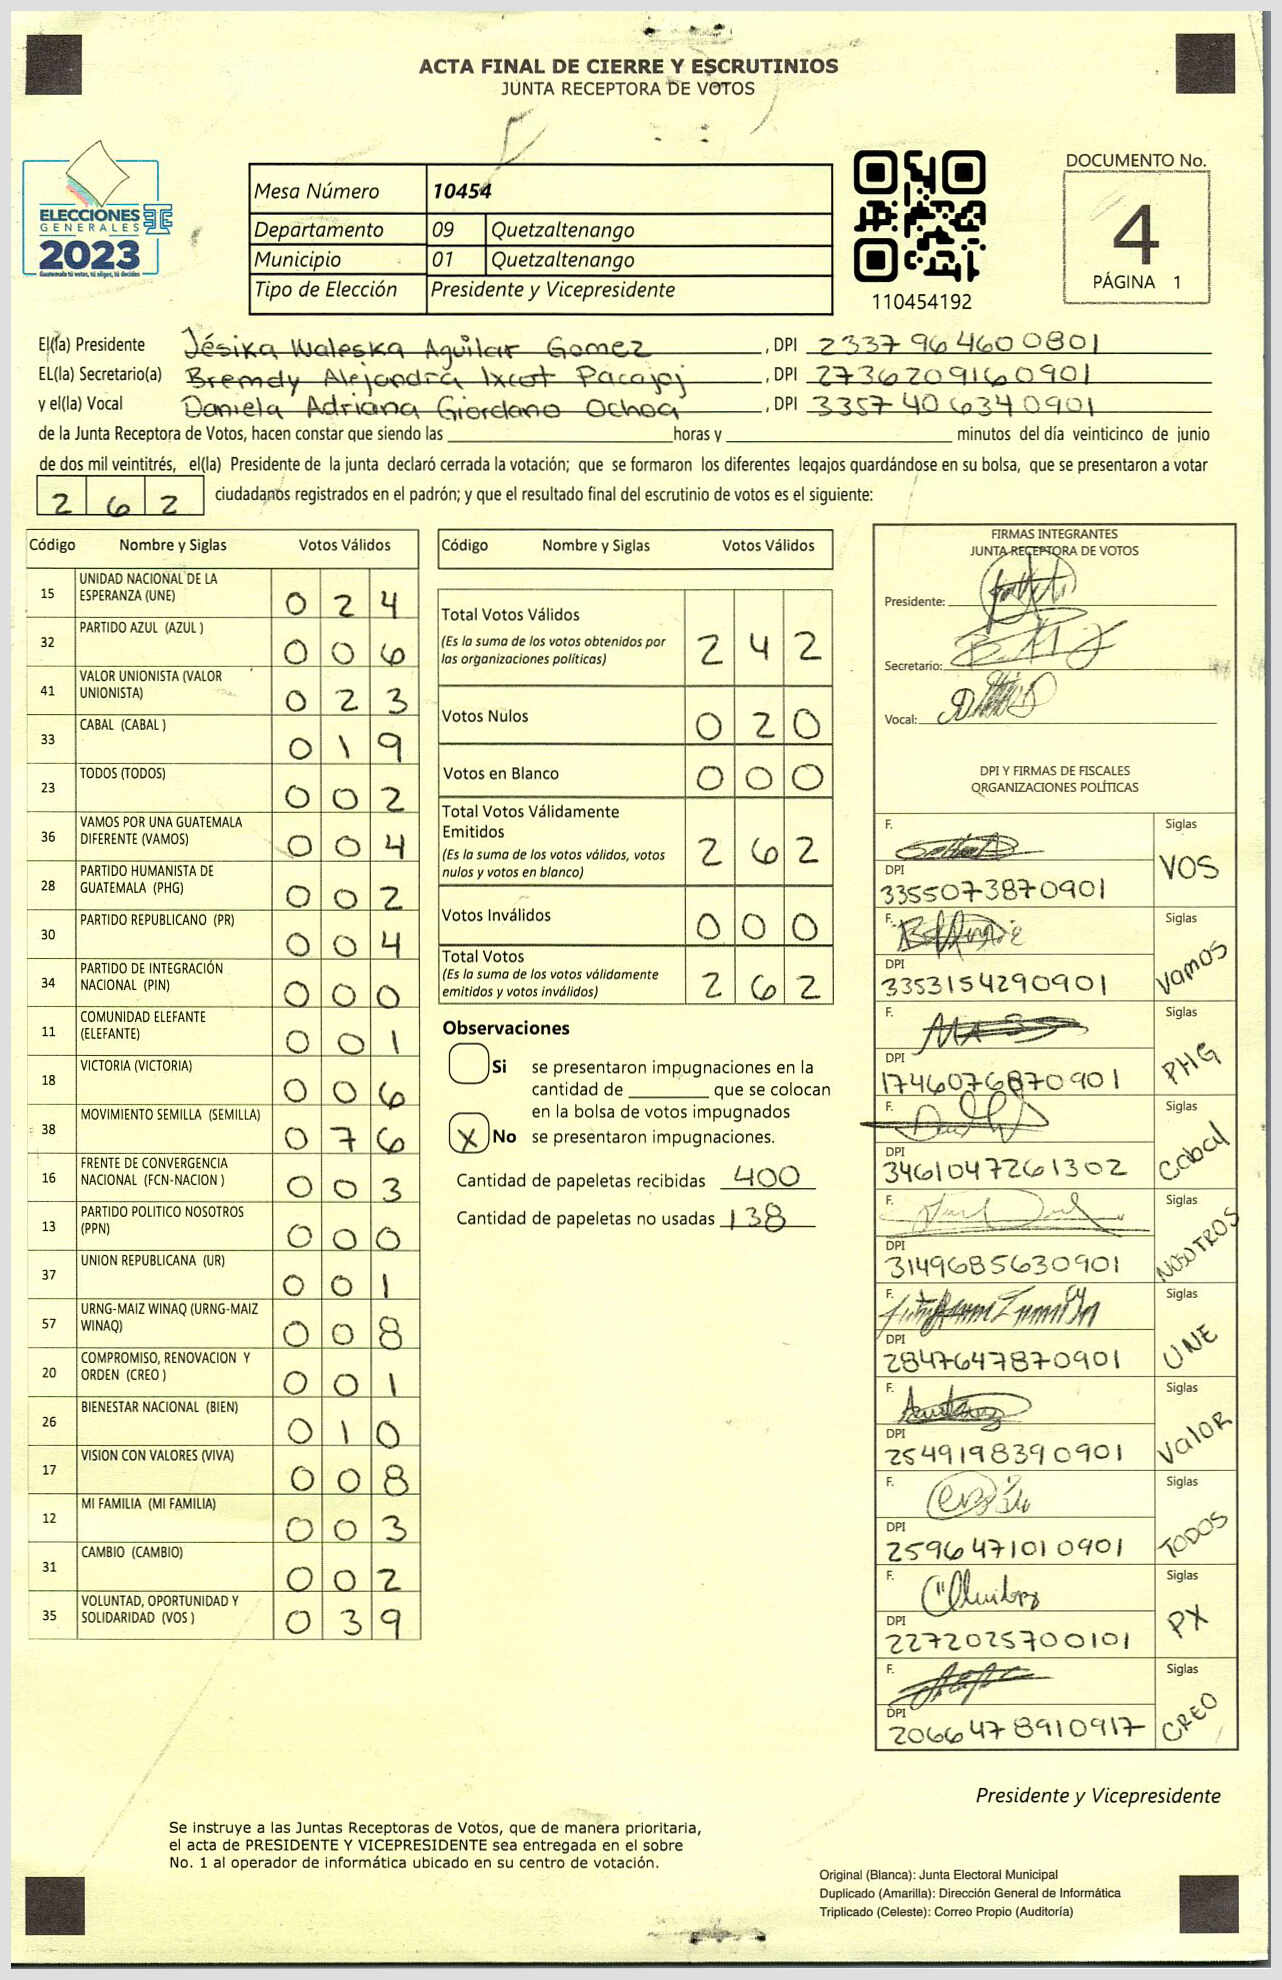 ACTA FINAL DE CIERRE Y ESCRUTINIOS
JUNTA RECEPTORA DE VOTOS
ELECCIONES
GENERALES
2023
Guatemala tú votas, tú eliges, tú decides
Mesa Número 10454
Departamento 09 Quetzaltenango
Municipio 01 Quetzaltenango
Tipo de Elección Presidente y Vicepresidente
110454192
DOCUMENTO No.
4
PÁGINA 1
El(la) Presidente Jésika Waleska Aguilar Gomez, DPI 2337964600801
EL(la) Secretario(a) Bremdy Alejandra Ixcot Pacajoj, DPI 2736209160901
y el(la) Vocal Daniela Adriana Giordano Ochoa, DPI 3357406340901
de la Junta Receptora de Votos, hacen constar que siendo las ____ horas y ____ minutos del día veinticinco de junio
de dos mil veintitrés, el(la) Presidente de la junta declaró cerrada la votación; que se formaron los diferentes legajos guardándose en su bolsa, que se presentaron a votar
262 ciudadanos registrados en el padrón; y que el resultado final del escrutinio de votos es el siguiente:
Código Nombre y Siglas Votos Válidos
15 UNIDAD NACIONAL DE LA ESPERANZA (UNE) 024
32 PARTIDO AZUL (AZUL ) 006
41 VALOR UNIONISTA (VALOR UNIONISTA) 023
33 CABAL (CABAL ) 019
23 TODOS (TODOS) 002
36 VAMOS POR UNA GUATEMALA DIFERENTE (VAMOS) 004
28 PARTIDO HUMANISTA DE GUATEMALA (PHG) 002
30 PARTIDO REPUBLICANO (PR) 004
34 PARTIDO DE INTEGRACIÓN NACIONAL (PIN) 000
11 COMUNIDAD ELEFANTE (ELEFANTE) 001
18 VICTORIA (VICTORIA) 006
38 MOVIMIENTO SEMILLA (SEMILLA) 076
16 FRENTE DE CONVERGENCIA NACIONAL (FCN-NACION ) 003
13 PARTIDO POLITICO NOSOTROS (PPN) 000
37 UNION REPUBLICANA (UR) 001
57 URNG-MAIZ WINAQ (URNG-MAIZ WINAQ) 008
20 COMPROMISO, RENOVACION Y ORDEN (CREO ) 001
26 BIENESTAR NACIONAL (BIEN) 010
17 VISION CON VALORES (VIVA) 008
12 MI FAMILIA (MI FAMILIA) 003
31 CAMBIO (CAMBIO) 002
35 VOLUNTAD, OPORTUNIDAD Y SOLIDARIDAD (VOS ) 039
Código Nombre y Siglas Votos Válidos
Total Votos Válidos 242
(Es la suma de los votos obtenidos por
las organizaciones políticas)
Votos Nulos 020
Votos en Blanco 000
Total Votos Válidamente
Emitidos 262
(Es la suma de los votos válidos, votos
nulos y votos en blanco)
Votos Inválidos 000
Total Votos 262
(Es la suma de los votos válidamente
emitidos y votos inválidos)
Observaciones
Si se presentaron impugnaciones en la
cantidad de ____ que se colocan
en la bolsa de votos impugnados
X No se presentaron impugnaciones.
Cantidad de papeletas recibidas 400
Cantidad de papeletas no usadas 138
FIRMAS INTEGRANTES
JUNTA RECEPTORA DE VOTOS
Presidente:
Secretario:
Vocal:
DPI Y FIRMAS DE FISCALES
ORGANIZACIONES POLÍTICAS
F. Siglas VOS
DPI 3355073870901
F. Siglas Vamos
DPI 3353154290901
F. Siglas PHG
DPI 1746076870901
F. Siglas Cabal
DPI 3461047261302
F. Siglas NOSOTROS
DPI 3149685630901
F. Siglas UNE
DPI 2847647870901
F. Siglas Valor
DPI 2549198390901
F. Siglas TODOS
DPI 2596471010901
F. Siglas PX
DPI 2272025700101
F. Siglas CREO
DPI 2066478910917
Presidente y Vicepresidente
Se instruye a las Juntas Receptoras de Votos, que de manera prioritaria,
el acta de PRESIDENTE Y VICEPRESIDENTE sea entregada en el sobre
No. 1 al operador de informática ubicado en su centro de votación.
Original (Blanca): Junta Electoral Municipal
Duplicado (Amarilla): Dirección General de Informática
Triplicado (Celeste): Correo Propio (Auditoría)